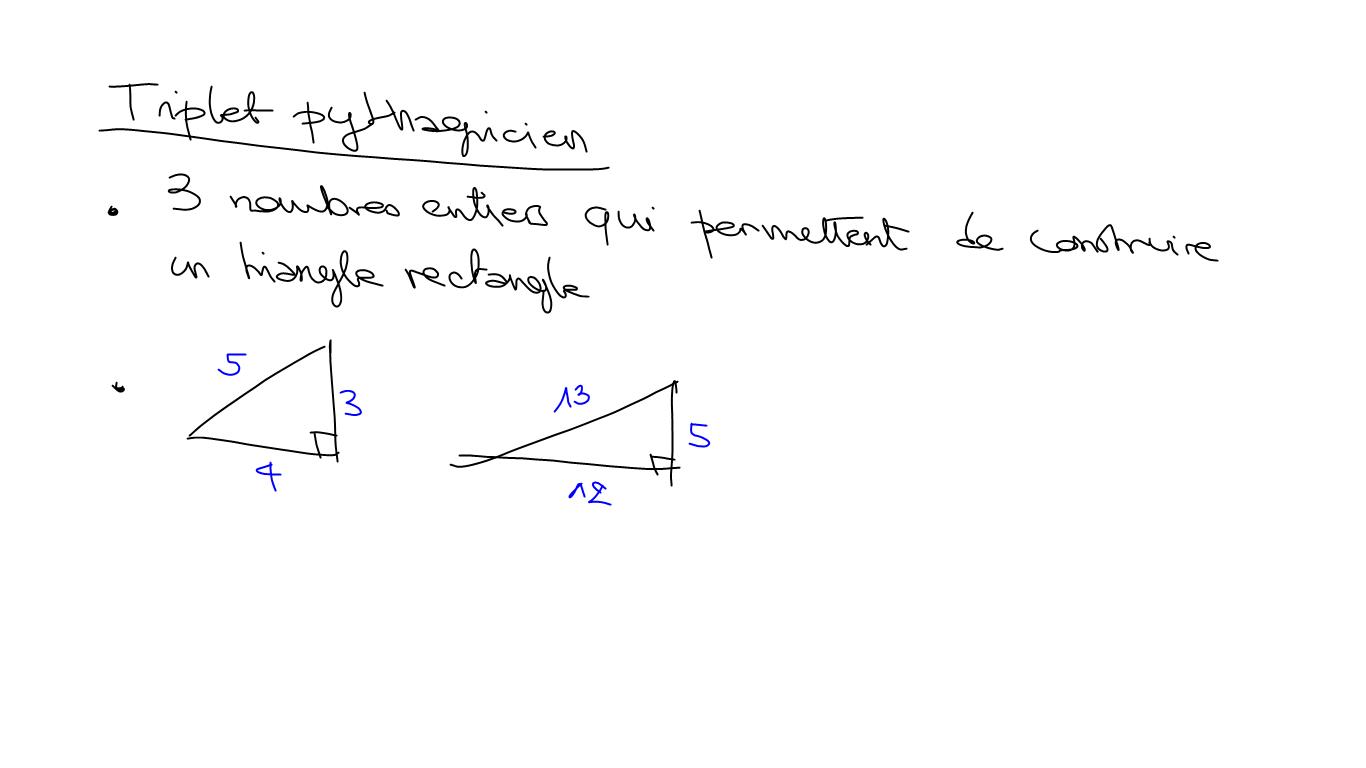 Triplet pythagoricien
• 3 nombres entiers qui permettent de construire
un triangle rectangle
•
5
3
4
13
5
12